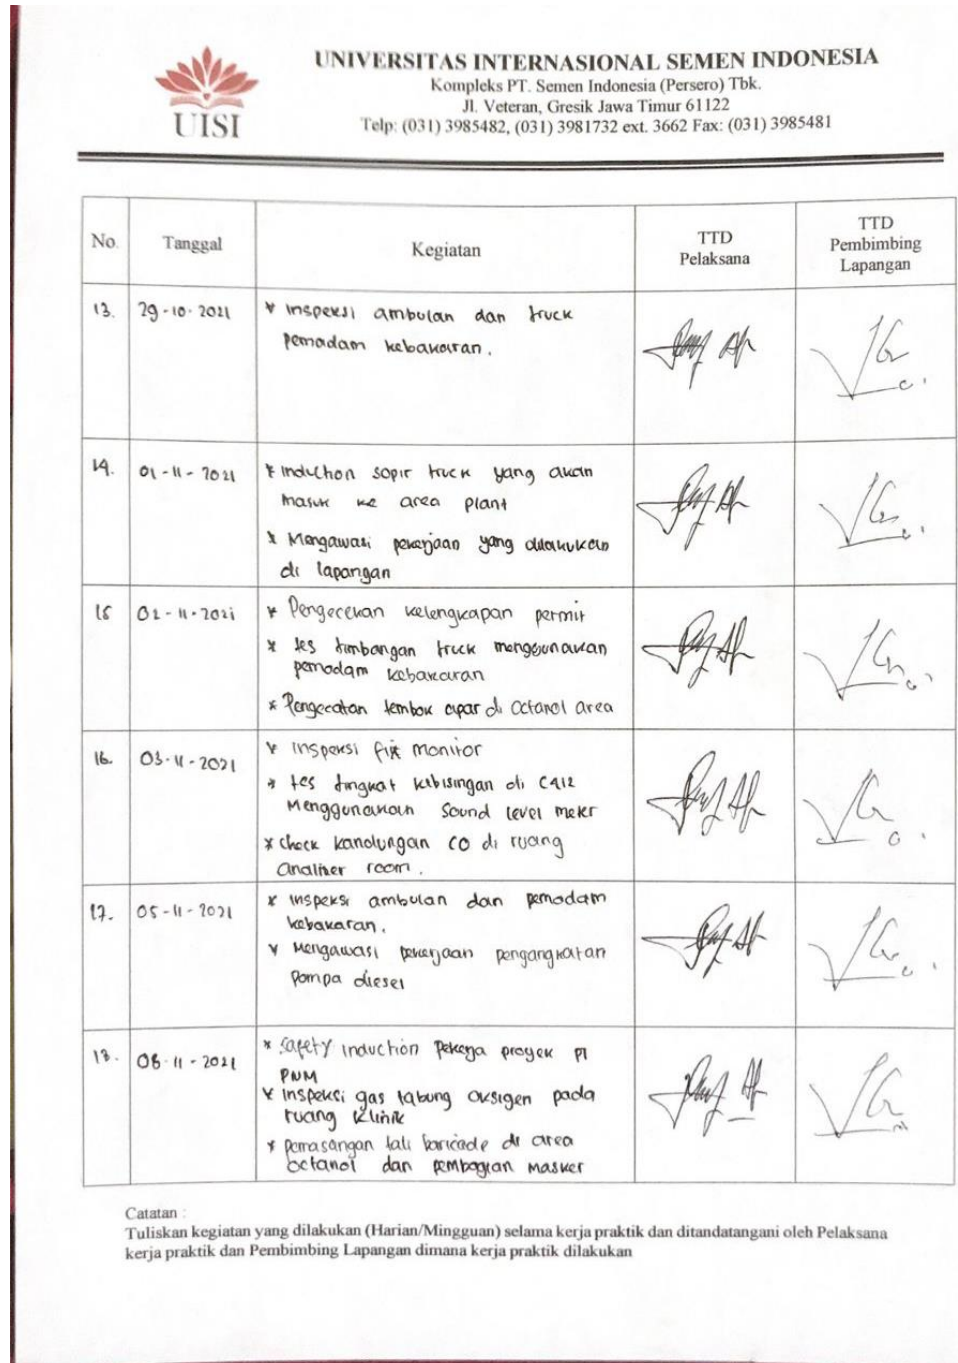 UISI
UNIVERSITAS INTERNASIONAL SEMEN INDONESIA
Kompleks PT. Semen Indonesia (Persero) Tbk.
Jl. Veteran, Gresik Jawa Timur 61122
Telp: (031) 3985482, (031) 3981732 ext. 3662 Fax: (031) 3985481
No. Tanggal Kegiatan TTD Pelaksana TTD Pembimbing Lapangan
13. 29-10-2021 * Inspeksi ambulan dan truck
pemadam kebakaran.
14. 01-11-2021 * Induction sopir truck yang akan
masuk ke area plant
* Mengawasi pekerjaan yang dilakukan
di lapangan
15 02-11-2021 * Pengecekan kelengkapan permit
* tes timbangan truck menggunakan
pemadam kebakaran
* Pengecatan tembok apar di Octanol area
16. 03-11-2021 * Inspeksi fix monitor
* tes tingkat kebisingan di C412
Menggunakan Sound level meter
* check kandungan CO di ruang
analiser room.
17. 05-11-2021 * Inspeksi ambulan dan pemadam
kebakaran.
* Mengawasi pekerjaan pengangkatan
Pompa diesel
18. 08-11-2021 * Safety induction Pekerja proyek PT
PNM
* Inspeksi gas tabung oksigen pada
ruang klinik
* pemasangan tali baricade di area
octanol dan pembagian masker
Catatan :
Tuliskan kegiatan yang dilakukan (Harian/Mingguan) selama kerja praktik dan ditandatangani oleh Pelaksana
kerja praktik dan Pembimbing Lapangan dimana kerja praktik dilakukan